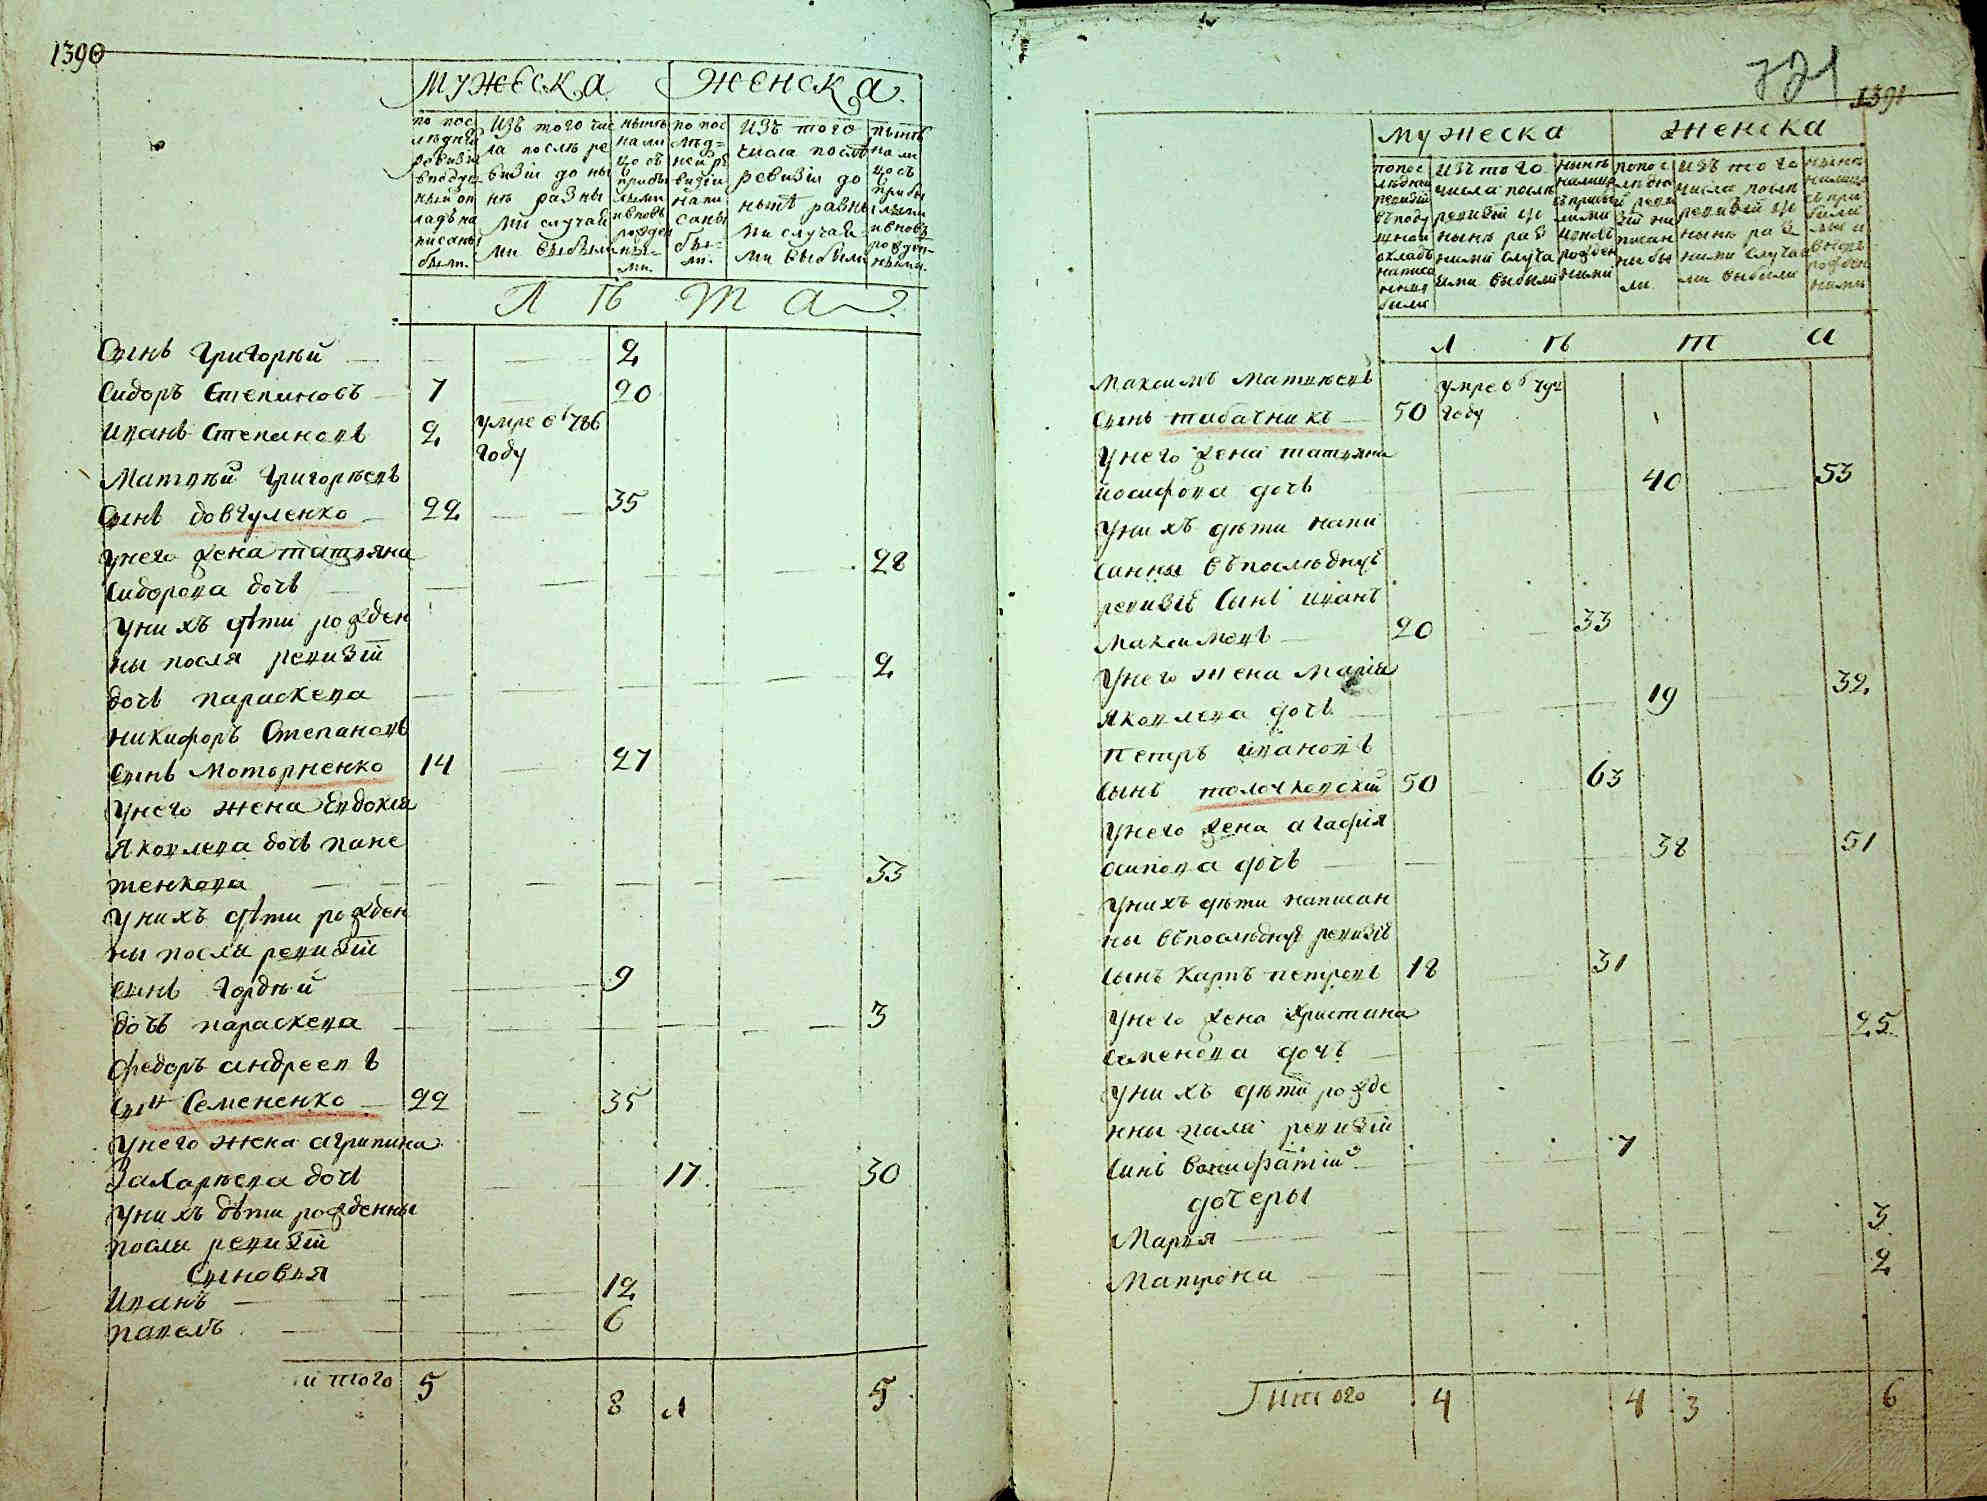 1390
МУЖЕСКА ЖЕНСКА
по пос лѣдней ревизіи вподуш ный ок ладъ на писаны были.
изъ того чис ла послѣ ре визіи до ны нѣ разны ми случаи ми выбыли
нынѣ нали цо съ прибы лыми ивновь рожден ны ми.
по пос лѣд= ней ре визіи напи саны бы= ли.
изъ того числа послѣ ревизіи до нынѣ разны ми случаи ми выбыли
нынѣ на ли цо съ прибы лыми ивновь рожден ными.
Л Ѣ Т А
Сынъ Григорѣй 2
Сидоръ Степановъ 7 20
Иванъ Степановъ 2 умре в 786
году
Матвѣй Григорѣевъ
Сынъ Довгуленко 22 35
Унего жена татияна 28
Сидорова дочь
Уни хъ дѣти рожден
ны после ревизіи
дочь параскева 2
Никифоръ Степановъ
Сынъ Моторненко 14 27
Унего жена Евдокия
Яковлева дочь пане
тенкова 33
Унихъ дѣти рожден
ны после ревизіи
сынъ Гордѣй 9
дочь параскева 3
Федоръ андреевъ
Сынъ Семененко 22 35
Унего жена агрипина
Захарѣева дочь 17 30
Унихъ дѣти рожденны
после ревизіи
Сыновья
Иванъ 12
павелъ 6
итого 5 8 1 5
721
1391
мужеска женска
попос лѣдней ревизіи въподу шной окладъ написа нными были
изъ того числа послѣ ревизіи до нынѣ раз ними случа ями выбыли
нынѣ налицо съ прибы лими ивновь рожден ними
попос лѣдней реви зіи на писан ни бы ли
изъ того числа послѣ ревизіи до нынѣ раз ними случая ми выбыли
нынѣ налицо съ при били ми и вновь рожден ними
л ѣ т а
Максимъ Матвѣевъ умре в
Сынъ табачникъ 50 году
Унего жена татияна
иосифова дочь 40 53
Уни хъ дѣти напи
санны въпослѣднуѣ
ревизіѣ Сынъ иванъ
Максимовъ 20 33
Унего жена Марія
Яковлева дочь 19 32
Петръ ивановъ
Сынъ толочковскій 50 63
Унего жена агафія
осипова дочь 38 51
Унихъ дѣти написан
ны въпослѣднуѣ ревизіѣ
Сынъ Карпъ петровъ 18 31
Унего жена христина 25
Семенова дочь
Уни хъ дѣти рожде
нны после ревизіи
Сынъ вонифатій 7
дочеры
Марія 3
Матрона 2
итого 4 4 3 6